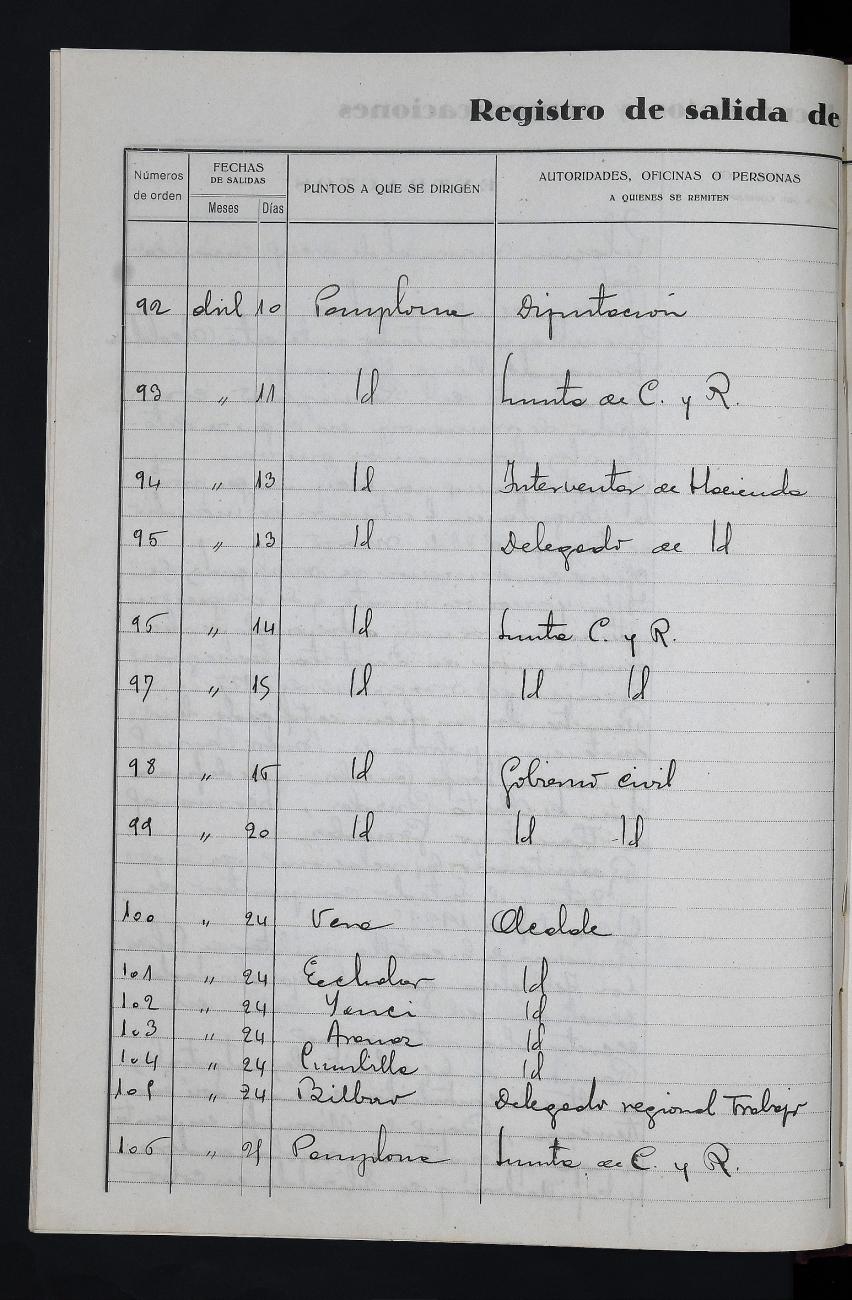 Registro de salida de
Números de orden | FECHAS DE SALIDAS Meses Días | PUNTOS A QUE SE DIRIGEN | AUTORIDADES, OFICINAS O PERSONAS A QUIENES SE REMITEN
92 abril 10 Pamplona Diputación
93 " 11 Id Junta de C. y R.
94 " 13 Id Interventor de Hacienda
95 " 13 Id Delegado de Id
96 " 14 Id Junta C. y R.
97 " 15 Id Id Id
98 " 16 Id Gobierno civil
99 " 20 Id Id Id
100 " 24 Vera Alcalde
101 " 24 Echalar Id
102 " 24 Yanci Id
103 " 24 Aranaz Id
104 " 24 Sumbilla Id
105 " 24 Bilbao Delegado regional Trabajo
106 " 25 Pamplona Junta de C. y R.